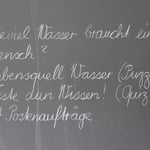 Wieviel Wasser braucht ein
Mensch?
Lebensquell Wasser (Puzz
Teste dein Wissen! (Quiz
4 Postenaufträge